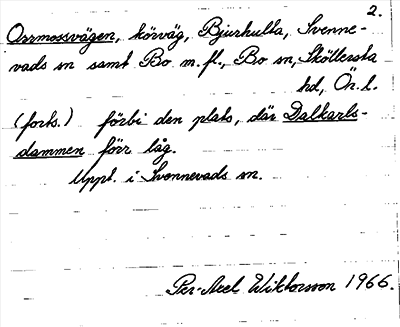 2.
Orrmossvägen, körväg, Bjurhulta, Svenne-
vads sn samt Bo m. fl., Bo sn, Sköllersta
hd, Ör. l.
(forts.) förbi den plats, där Dalkarls-
dammen förr låg.
Uppt. i Svennevads sn.
Per-Axel Wiktorsson 1966.